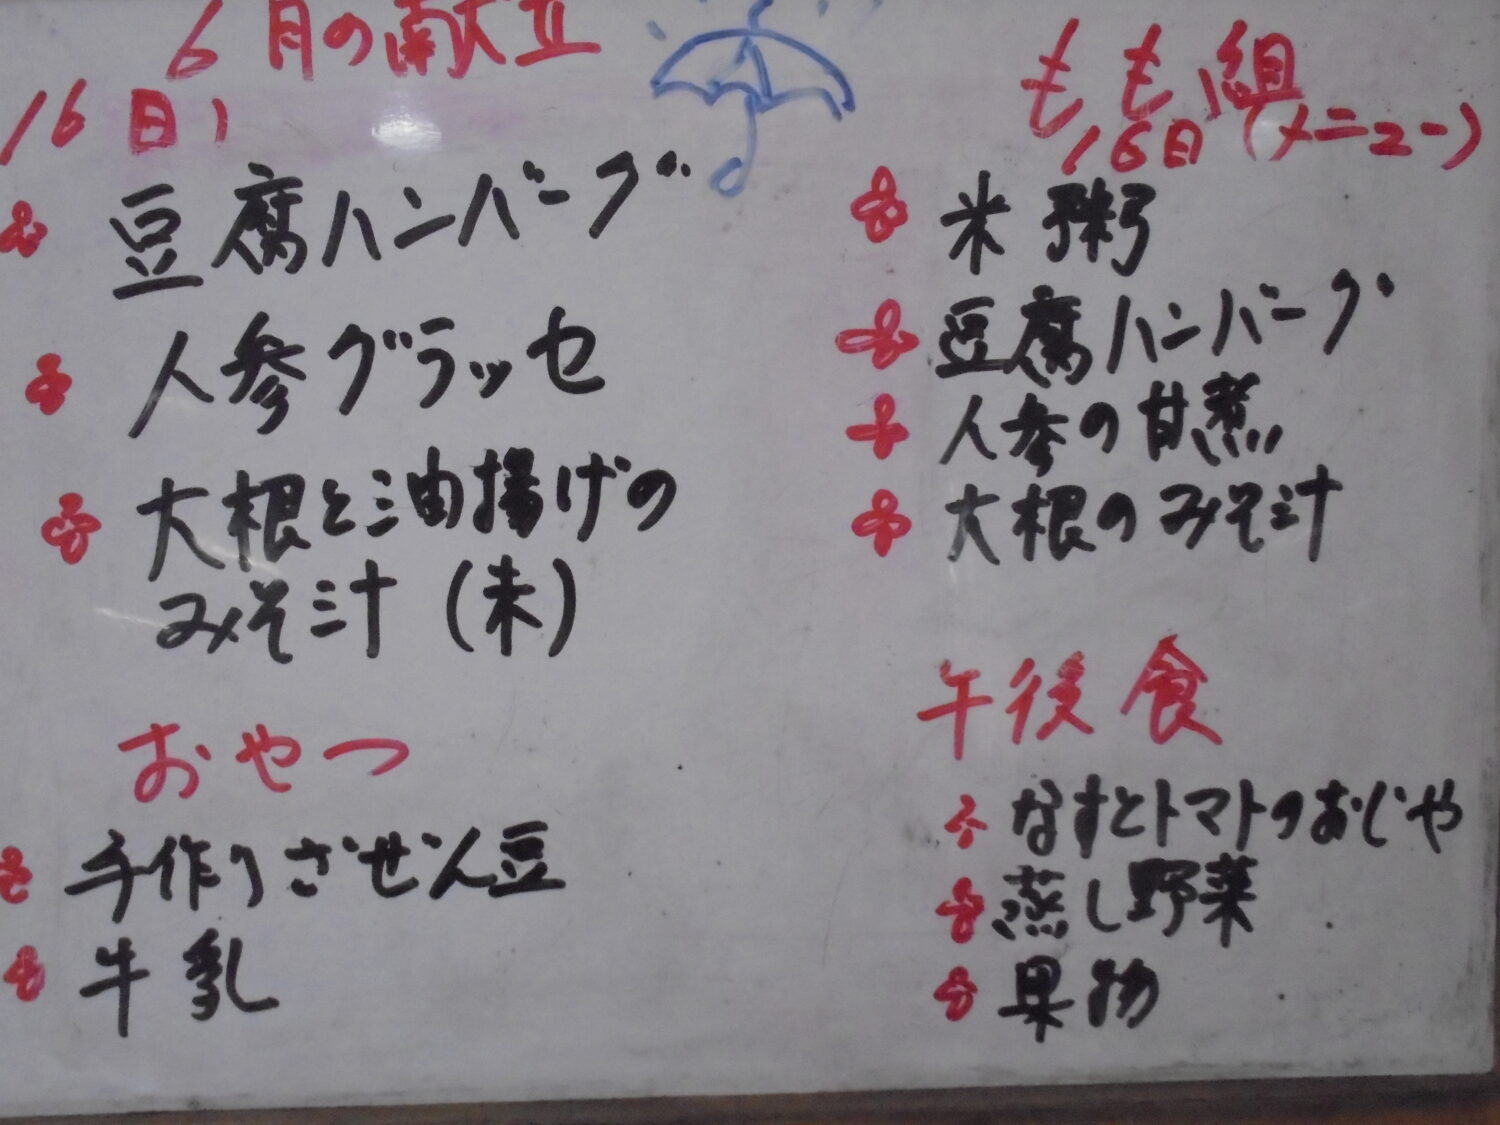 6月の献立
16日)
豆腐ハンバーグ
人参グラッセ
大根と油揚げの
みそ汁(朱)
おやつ
手作りざぜん豆
牛乳
もも組
16日(メニュー)
米粥
豆腐ハンバーグ
人参の甘煮
大根のみそ汁
午後食
なすとトマトのおじや
蒸し野菜
果物